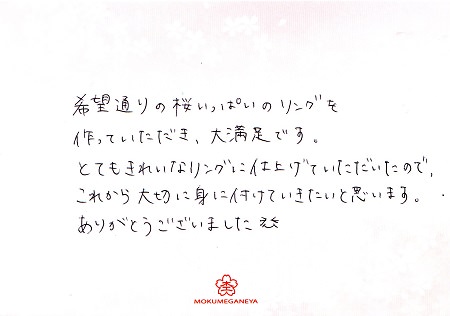 希望通りの桜いっぱいのリングを
作っていただき、大満足です。
とてもきれいなリングに仕上げていただいたので、
これから大切に身に付けていきたいと思います。
ありがとうございました
MOKUMEGANEYA